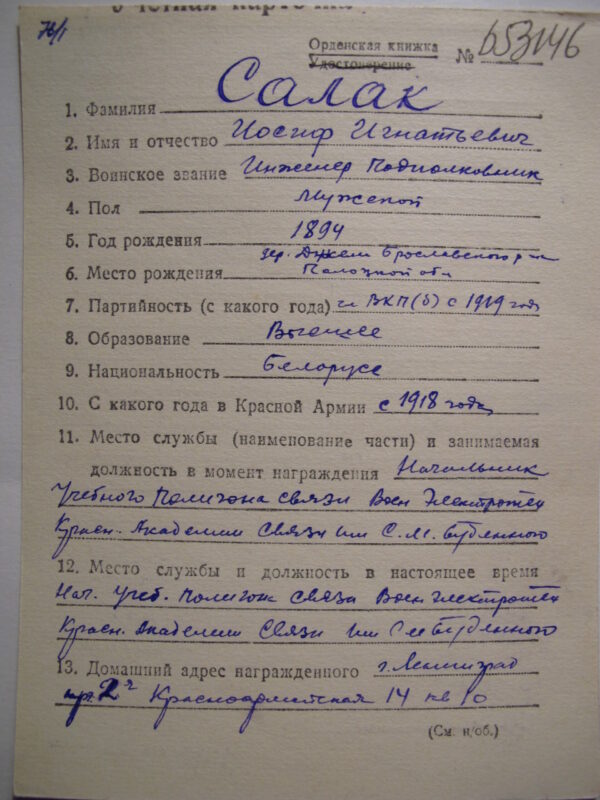 Учетная карточка
76/1
Орденская книжка
Удостоверение
№ 653146
1. Фамилия Салак
2. Имя и отчество Иосиф Игнатьевич
3. Воинское звание Инженер Подполковник
4. Пол Мужской
5. Год рождения 1894
дер. Браславского р-на
6. Место рождения Полоцкой обл
7. Партийность (с какого года) чл ВКП(б) с 1919 года
8. Образование Высшее
9. Национальность Белорусс
10. С какого года в Красной Армии с 1918 года
11. Место службы (наименование части) и занимаемая
должность в момент награждения Начальник
Учебного Полигона связи Воен Электротех
Красн. Академии Связи им С.М. Буденного
12. Место службы и должность в настоящее время
Нач. Учеб. Полигона связи Военэлектротех
Красн. Академии Связи им СМ Буденного
13. Домашний адрес награжденного г. Ленинград
2я Красноармейская 14 кв 10
(См. н/об.)